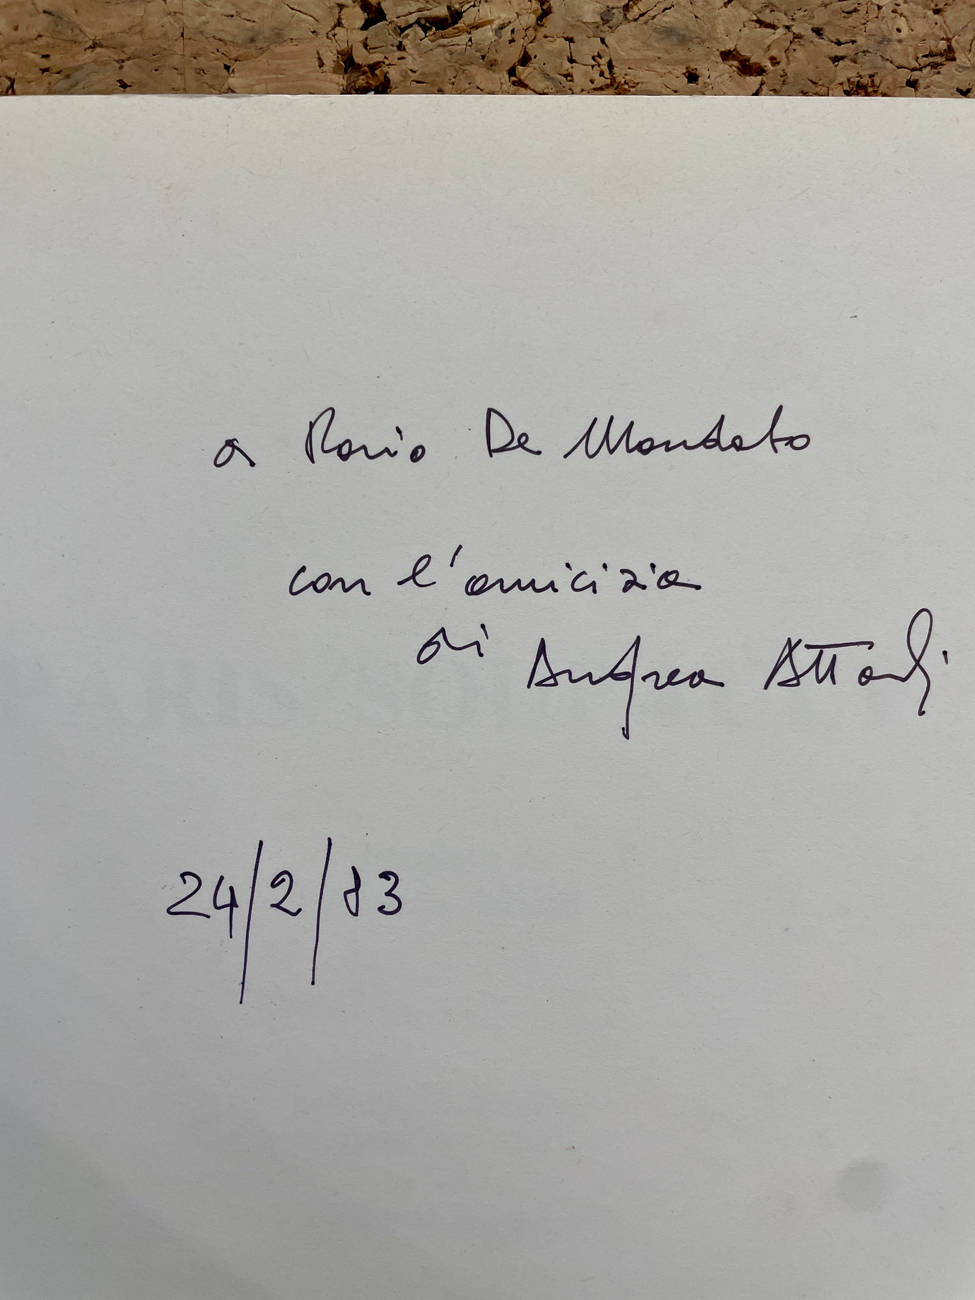 a Rocio De Mondato
con l'amicizia
di Andrea Attardi
24/2/83